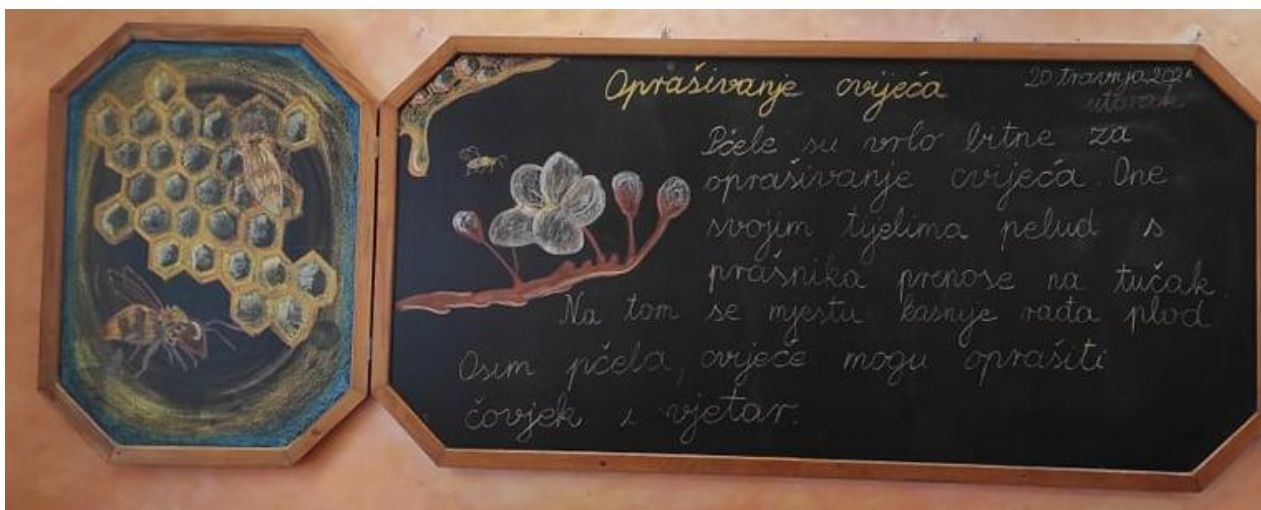 Oprašivanje cvijeća
20. travnja 202
utorak
Pčele su vrlo bitne za
oprašivanje cvijeća. One
svojim tijelima pelud s
prašnika prenose na tučak.
Na tom se mjestu kasnije rađa plod
Osim pčela, cvijeće mogu oprašiti
čovjek i vjetar.